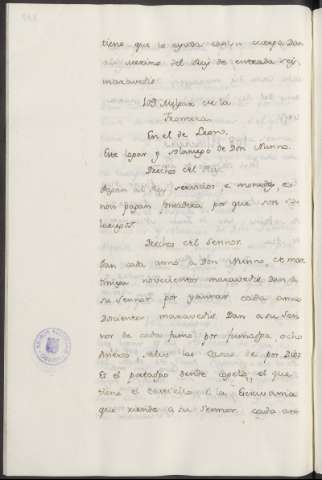 tiene que lo ayuda con su cuerpo Dan
al verano del Rey de entrada seys
maravedis.
Frontera.
En el de Leon.
Este logar y solariego de Don Nunno.
Derechos del Rey.
Pagan al Rey servicios e monedas, e
non pagan fonsadera por que non
Derechos del Sennor.
Dan cada anno a Don Nunno, de mar-
tiniega novecientos maravedis Dan a
su Sennor por yantar cada anno
Docientos maravedis. Dan a su Sen-
nor de cada fumo por fumadga, ocho
dineros, salvo las Casas de por Dios
Es el portadgo dende aparte, el que
tiene el castiello e la Escrivania
que riende a su Sennor cada an-